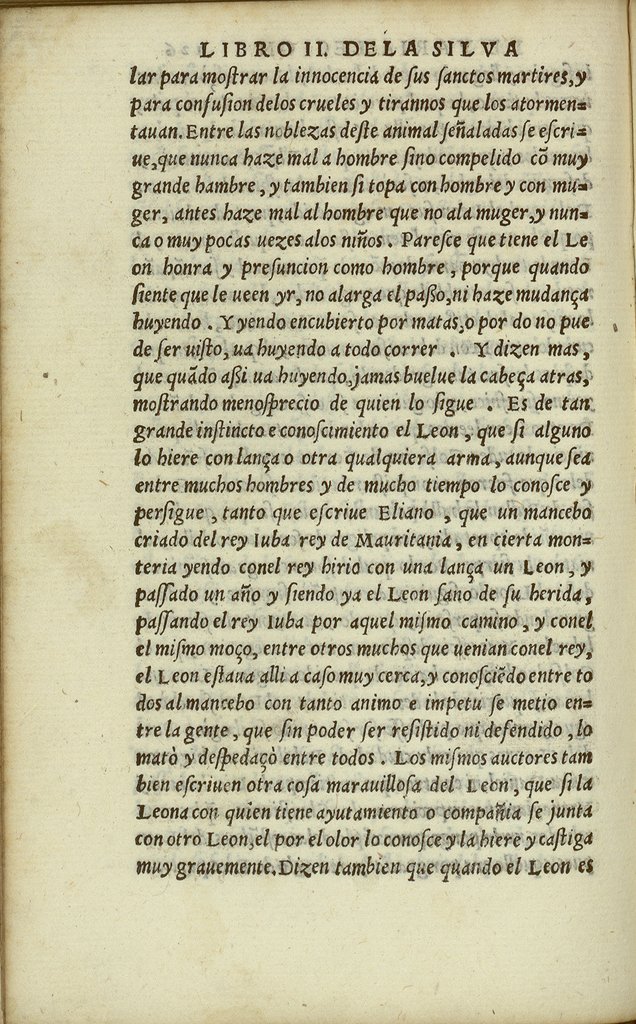 LIBRO II. DELA SILVA
lar para moſtrar la innocencia de ſus ſanctos martires, y
para confuſion delos crueles y tirannos que los atormen=
tauan. Entre las noblezas deſte animal ſeñaladas ſe eſcri=
ue, que nunca haze mal a hombre ſino compelido cõ muy
grande hambre, y tambien ſi topa con hombre y con mu=
ger, antes haze mal al hombre que no ala muger, y nun=
ca o muy pocas uezes alos niños. Pareſce que tiene el Le
on honra y preſuncion como hombre, porque quando
ſiente que le ueen yr, no alarga el paſſo, ni haze mudança
huyendo. Y yendo encubierto por matas, o por do no pue
de ſer uiſto, ua huyendo a todo correr. Y dizen mas,
que quãdo aſſi ua huyendo, jamas buelue la cabeça atras,
moſtrando menoſprecio de quien lo ſigue. Es de tan
grande inſtincto e conoſcimiento el Leon, que ſi alguno
lo hiere con lança o otra qualquiera arma, aunque ſea
entre muchos hombres y de mucho tiempo lo conoſce y
perſigue, tanto que eſcriue Eliano, que un mancebo
criado del rey Iuba rey de Mauritania, en cierta mon=
teria yendo conel rey hirio con una lança un Leon, y
paſſado un año y ſiendo ya el Leon ſano de ſu herida,
paſſando el rey Iuba por aquel miſmo camino, y conel
el miſmo moço, entre otros muchos que uenian conel rey,
el Leon eſtaua alli a caſo muy cerca, y conoſciẽdo entre to
dos al mancebo con tanto animo e impetu ſe metio en=
tre la gente, que ſin poder ſer reſiſtido ni defendido, lo
matò y deſpedaçò entre todos. Los miſmos auctores tam
bien eſcriuen otra coſa marauilloſa del Leon, que ſi la
Leona con quien tiene ayutamiento o compañia ſe junta
con otro Leon, el por el olor lo conoſce y la hiere y caſtiga
muy grauemente. Dizen tambien que quando el Leon es